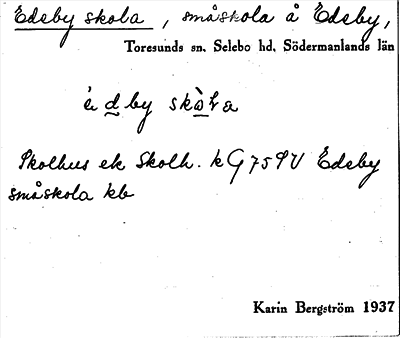 Edeby skola, småskola å Edeby,
Toresunds sn. Selebo hd. Södermanlands län
èdby skòla
Skolhus ek Skolh. k G 75 SV Edeby
småskola kb
Karin Bergström 1937